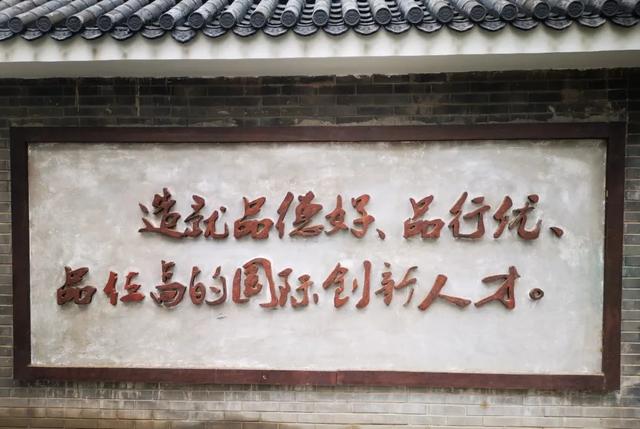 造就品德好、品行优、
品位高的国际创新人才。